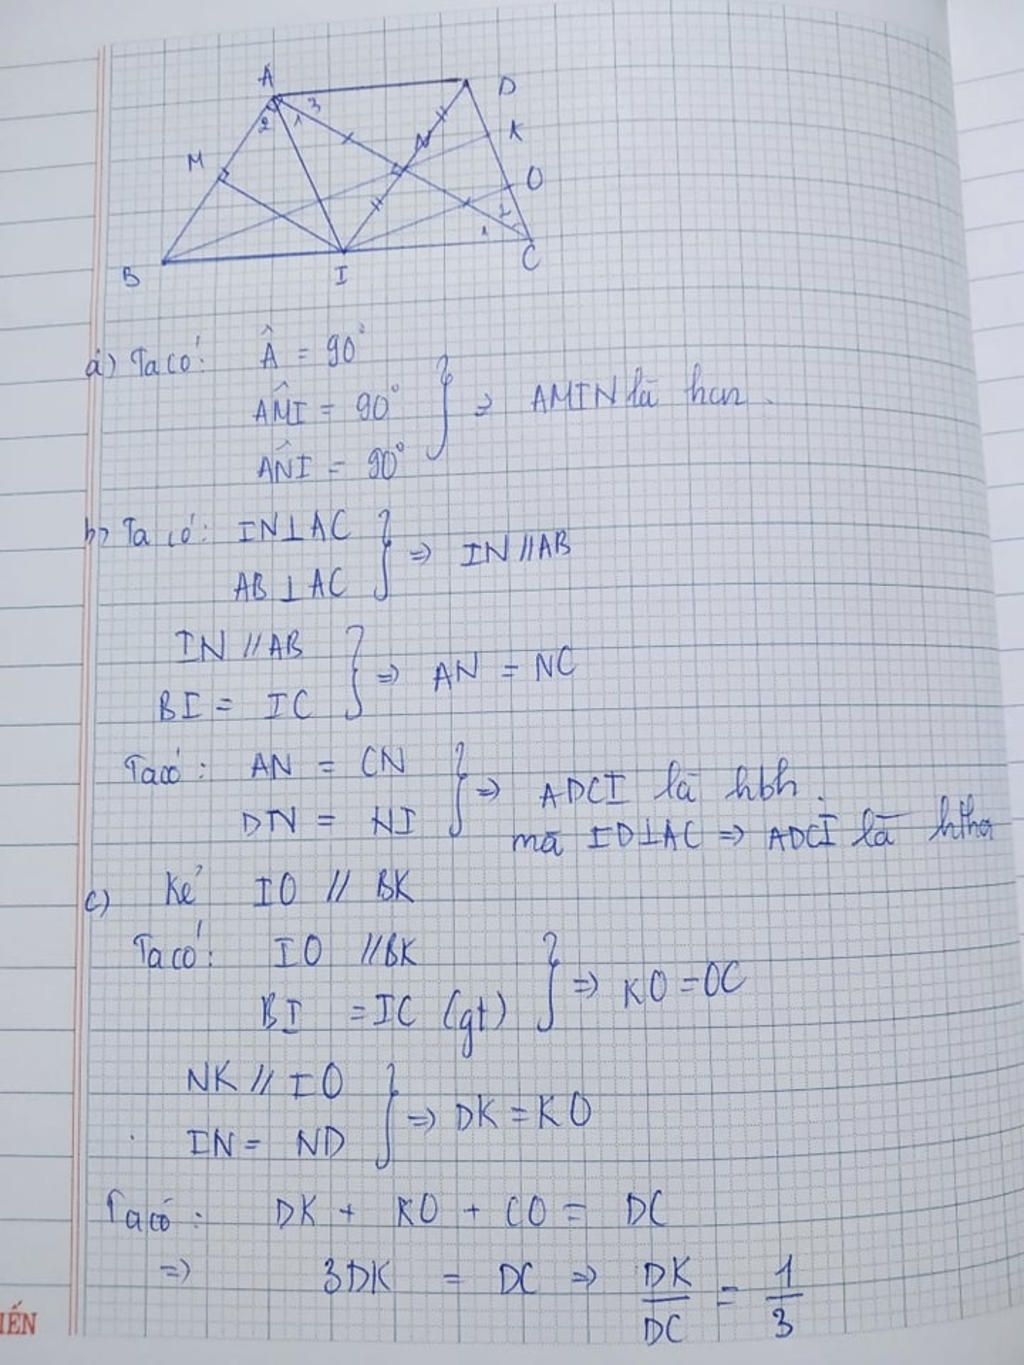 A
D
3
2
1
M
N
K
O
2
1
B
I
C
a) Ta có: Â = 90°
AMI = 90°
ANI = 90°
} => AMIN là hcn.
b) Ta có: IN ⊥ AC
AB ⊥ AC
} => IN // AB
IN // AB
BI = IC
} => AN = NC
Ta có: AN = CN
DN = NI
} => ADCI là hbh.
mà ID ⊥ AC => ADCI là hthoi
c) Kẻ IO // BK
Ta có: IO // BK
BI = IC (gt)
} => KO = OC
NK // IO
IN = ND
} => DK = KO
Ta có: DK + KO + CO = DC
=> 3DK = DC => DK/DC = 1/3
IẾN